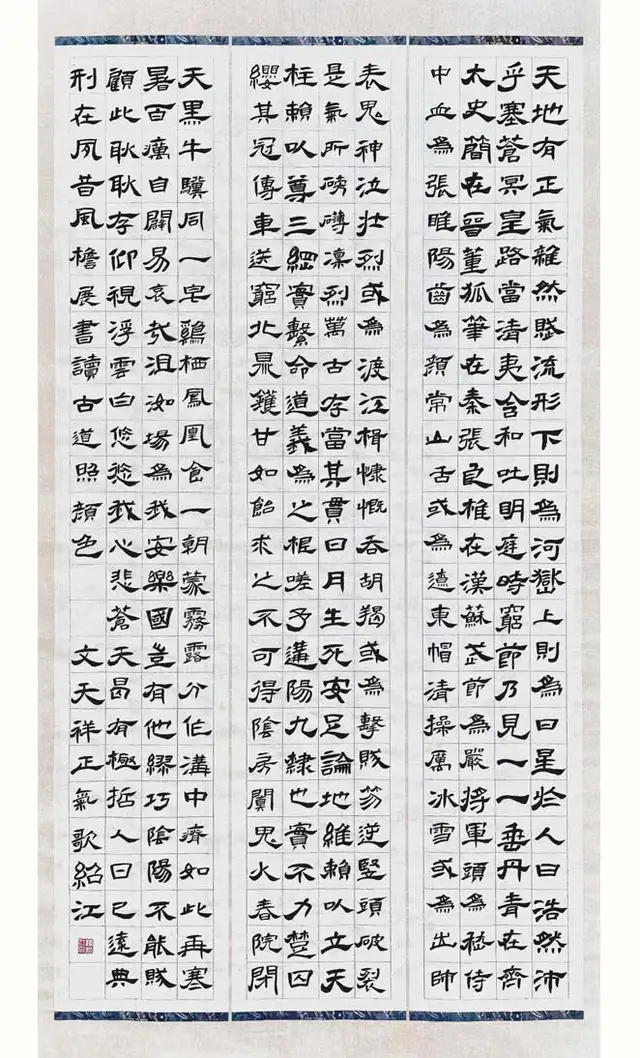 天地有正氣雜然賦流形下則為河嶽上則為日星於人曰浩然沛
乎塞蒼冥皇路當清夷含和吐明庭時窮節乃見一一垂丹青在齊
太史簡在晉董狐筆在秦張良椎在漢蘇武節為嚴將軍頭為嵇侍
中血為張睢陽齒為顏常山舌或為遼東帽清操厲冰雪或為出師
表鬼神泣壯烈或為渡江楫慷慨吞胡羯或為擊賊笏逆豎頭破裂
是氣所磅礴凜烈萬古存當其貫日月生死安足論地維賴以立天
柱賴以尊三綱實繫命道義為之根嗟予遘陽九隸也實不力楚囚
纓其冠傳車送窮北鼎鑊甘如飴求之不可得陰房闃鬼火春院閉
天黑牛驥同一皂鷄栖鳳凰食一朝蒙霧露分作溝中瘠如此再寒
暑百癘自闢易哀哉沮洳場為我安樂國豈有他繆巧陰陽不能賊
顧此耿耿存仰視浮雲白悠悠我心悲蒼天曷有極哲人日已遠典
刑在夙昔風檐展書讀古道照顏色 文天祥正氣歌紹江